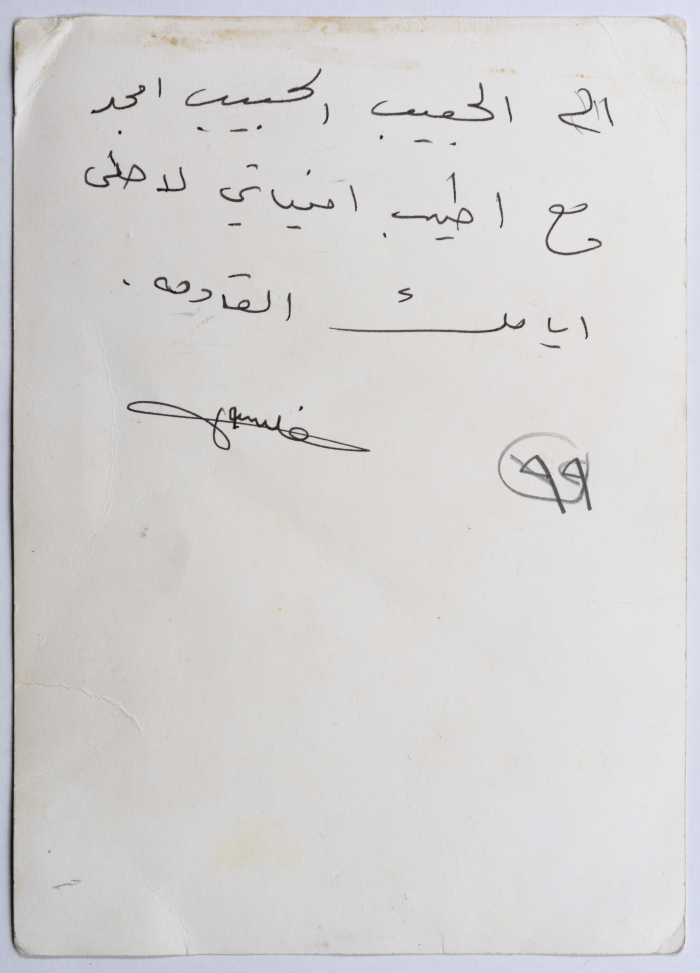 الى الحبيب الحبيب امجد
مع اطيب امنياتي لاحلى
ايامك القادمه.
٩٩